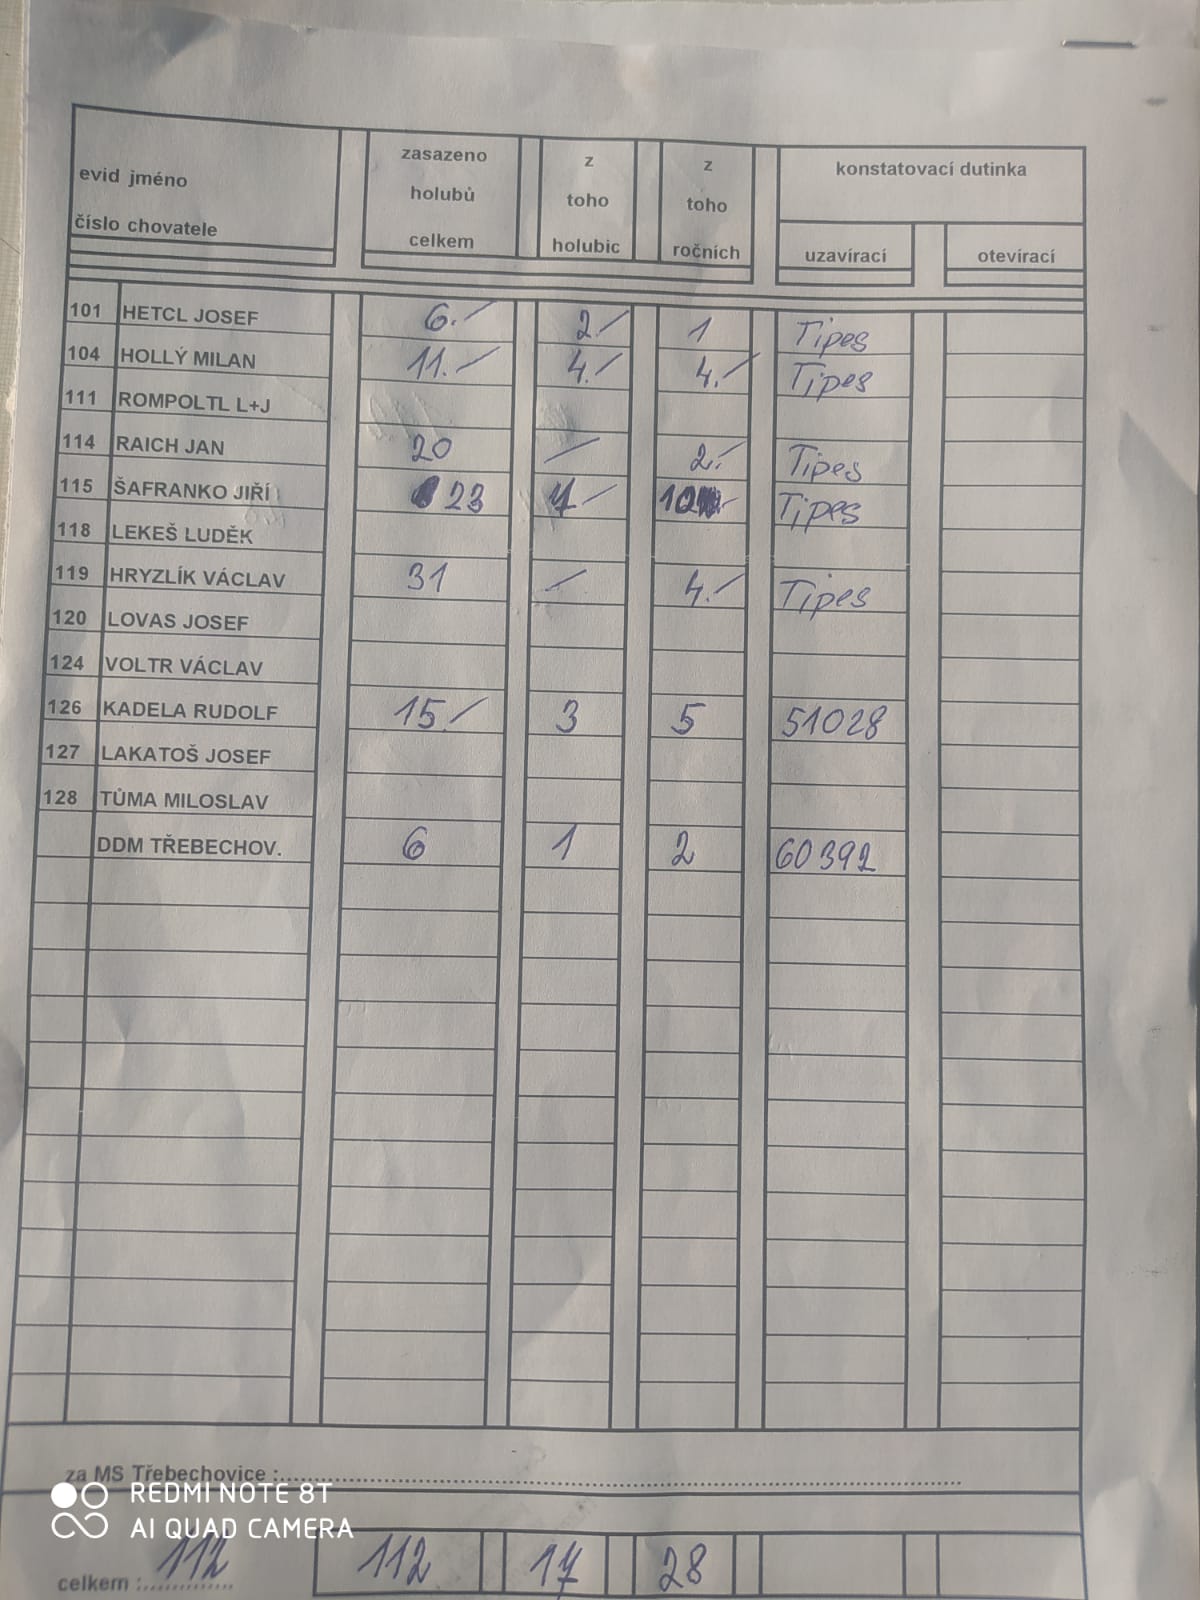 evid jméno
číslo chovatele
zasazeno holubů celkem
z toho holubic
z toho ročních
konstatovací dutinka
uzavírací otevírací
101 HETCL JOSEF 6.- 2.- 1 Tipes
104 HOLLÝ MILAN 11.- 4.- 4.- Tipes
111 ROMPOLTL L+J
114 RAICH JAN 20 - 2.- Tipes
115 ŠAFRANKO JIŘÍ 23 7- 10 Tipes
118 LEKEŠ LUDĚK
119 HRYZLÍK VÁCLAV 31 - 4.- Tipes
120 LOVAS JOSEF
124 VOLTR VÁCLAV
126 KADELA RUDOLF 15.- 3 5 51028
127 LAKATOŠ JOSEF
128 TŮMA MILOSLAV
DDM TŘEBECHOV. 6 1 2 60392
za MS Třebechovice :
REDMI NOTE 8T
AI QUAD CAMERA
celkem : 112 112 17 28